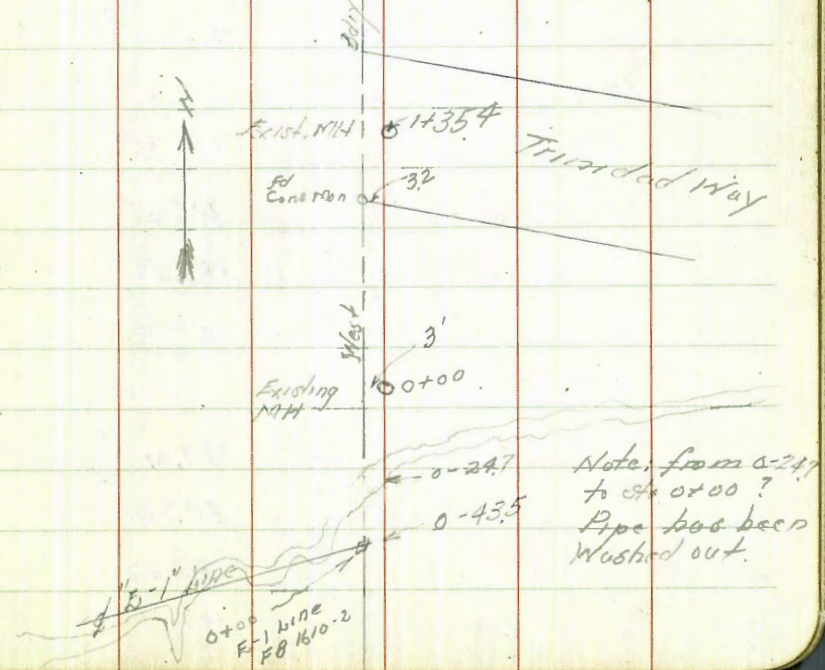 Bdry
N
Exist. MH
1+35.4
Trinidad Way
fd
Conc Mon
3.2
West
3'
Existing
MH
0+00
0-24.7
0-43.5
Note: from 0-24.7
to sta 0+00 ?
Pipe has been
Washed out.
℄ "E-1" Line
0+00
E-1 Line
FB 1610-2